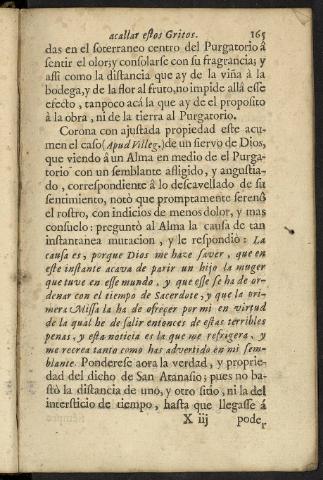 acallar estos Gritos. 165
das en el soterraneo centro del Purgatorio â
sentir el olor; y consolarse con su fragrancia; y
assi como la distancia que ay de la viña à la
bodega, y de la flor al fruto, no impide allá esse
efecto, tanpoco acá la que ay de el proposito
à la obra, ni de la tierra al Purgatorio.
Corona con ajustada propiedad este acu-
men el caso (Apud Villeg.) de un siervo de Dios,
que viendo à un Alma en medio de el Purga-
torio con un semblante afligido, y angustia-
do, correspondiente â lo descavellado de su
sentimiento, notò que promptamente serenô
el rostro, con indicios de menos dolor, y mas
consuelo: preguntò al Alma la causa de tan
instantanea mutacion, y le respondiò: La
causa es, porque Dios me haze saver, que en
este instante acava de parir un hijo la muger
que tuve en esse mundo, y que esse se ha de or-
denar con el tiempo de Sacerdote, y que la pri-
mera Missa la ha de ofreçer por mi en virtud
de la quàl he de salir entonces de estas terribles
penas, y esta noticia es la que me refrigera, y
me recrea tanto como has advertido en mi sem-
blante. Ponderese aora la verdad, y proprie-
dad del dicho de San Atanasio; pues no ba-
stò la distancia de uno, y otro sitio, ni la del
intersticio de tiempo, hasta que llegasse á
X iij poder